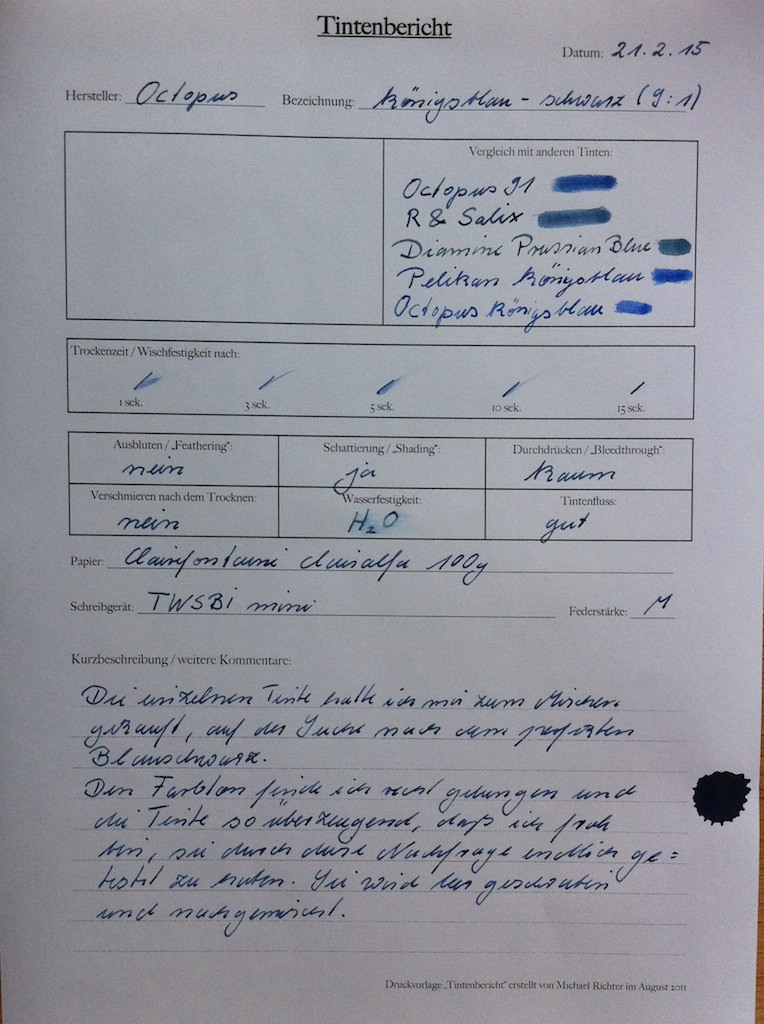 Tintenbericht
Datum: 21.2.15
Hersteller: Octopus Bezeichnung: Königsblau - schwarz (9:1)
Vergleich mit anderen Tinten:
Octopus 91
R & Salix
Diamine Prussian Blue
Pelikan Königsblau
Octopus Königsblau
Trockenzeit / Wischfestigkeit nach:
1 sek. 3 sek. 5 sek. 10 sek. 15 sek.
Ausbluten / „Feathering": Schattierung / „Shading": Durchdrücken / „Bleedthrough":
nein ja kaum
Verschmieren nach dem Trocknen: Wasserfestigkeit: Tintenfluss:
nein H₂O gut
Papier: Clairefontaine Clairalfa 100g
Schreibgerät: TWSBI mini Federstärke: M
Kurzbeschreibung / weitere Kommentare:
Die einzelnen Tinte hatte ich mir zum Mischen
gekauft, auf der Suche nach dem perfekten
Blauschwarz.
Den Farbton finde ich recht gelungen und
die Tinte so überzeugend, daß ich froh
bin, sie durch diese Nachfrage endlich ge=
testet zu haben. Sie wird leer geschrieben
und nachgemischt.
Druckvorlage „Tintenbericht" erstellt von Michael Richter im August 2011